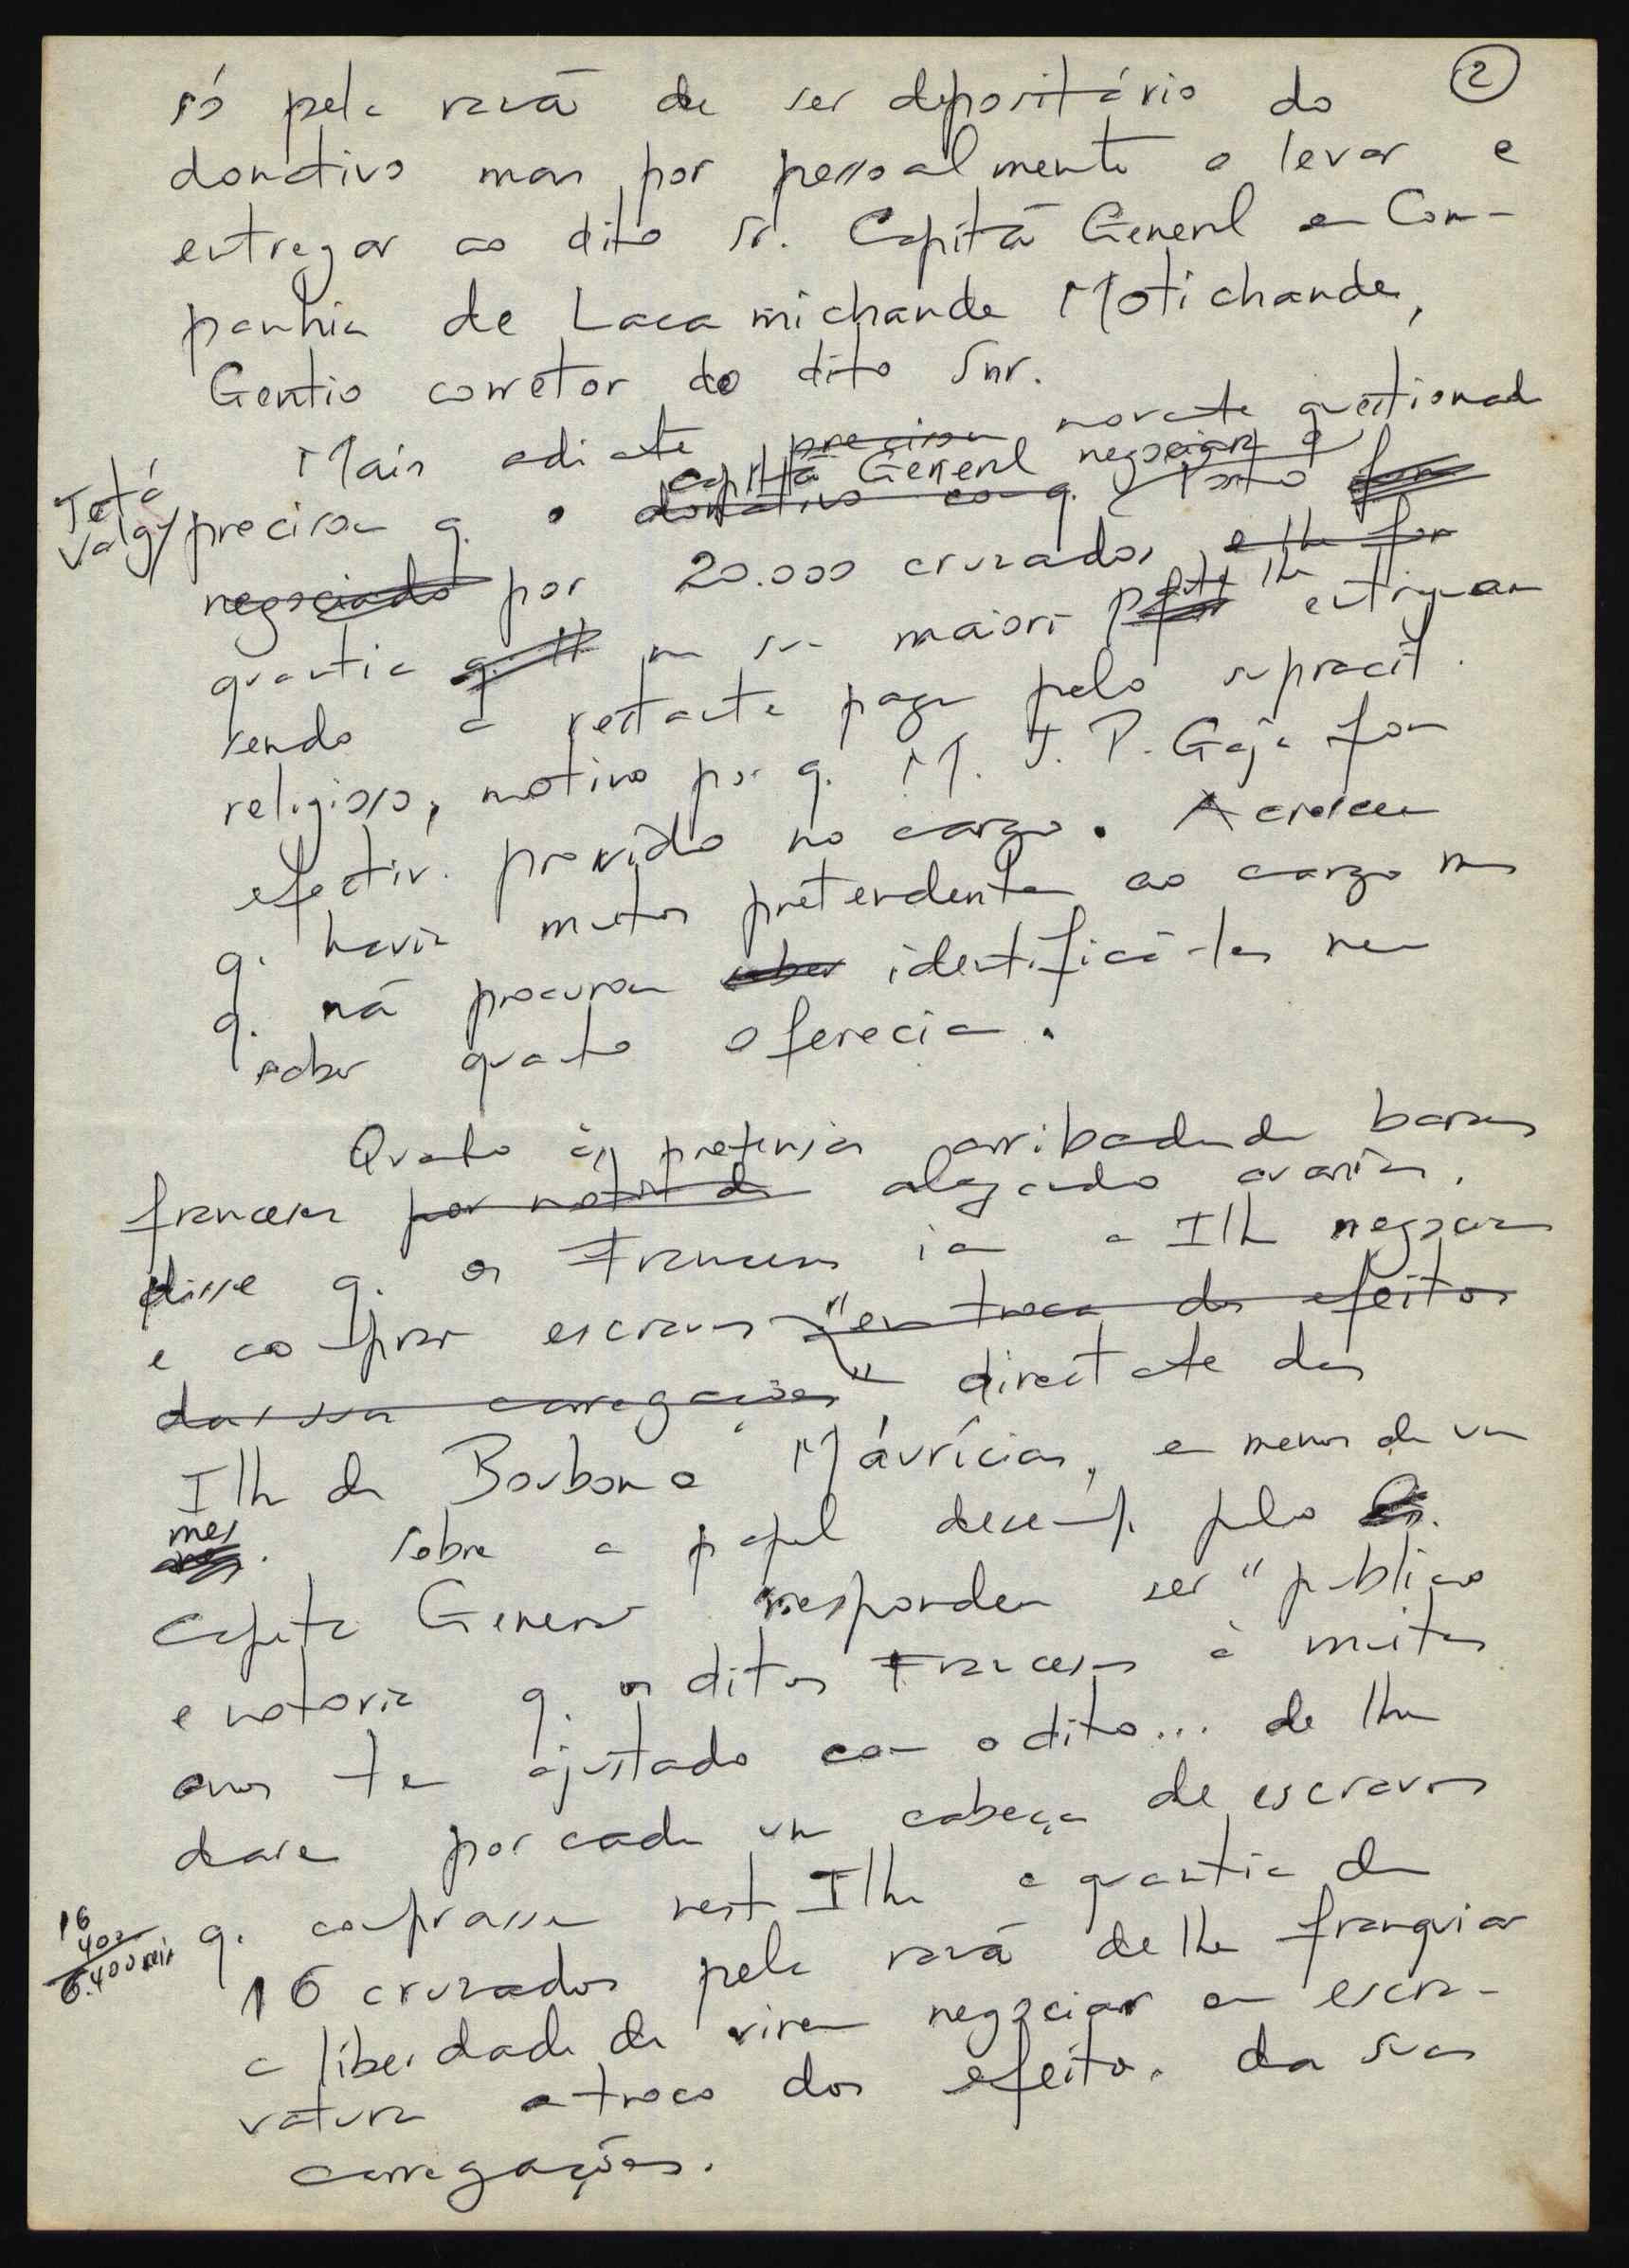 2
só pela razã de ser depositário do
donativo mas por pessoalmente o levar e
entregar ao dito Sr. Capitã General em Com-
panhia de Lacamichande Motichande,
Gentio corretor do dito Snr.
Mais adiante precisou novamente questionado
Capitã General negociara o
precisou q. o donativo com q. Posto fora
negociado por 20.000 cruzados, e lhe fora
quantia q. na sua maioria lhe entregara
sendo a restante paga pelo supracit.
religioso, motivo por q. M. J. P. Gajo fora
efectiv. provido no cargo. Acresceu
q. havia muitos pretendentes ao cargo mas
q. nã procurou saber identificá-los nem
saber quanto oferecia.
Quanto às pretensas arribadas de barcos
franceses por motivo de alegando avarias,
disse q. os Franceses iam a Ilha negociar
e comprar escravos "em troca dos efeitos
das suas carregações" directamente das
Ilhas de Bourbon e Maurícias, em menos de um
mes. Sobre o papel desemp. pelo
Capitã General respondeu ser "publico
e notorio q. os ditos Franceses à muitos
anos tem ajustado com o dito... de lhe
darem por cada uma cabeça de escravos
q. comprassem nesta Ilha a quantia de
16 cruzados pela razã de lhe franquiar
a liberdade de virem negociar em escra-
vatura a troco dos efeitos das suas
carregações.
16
400
6.400 reis